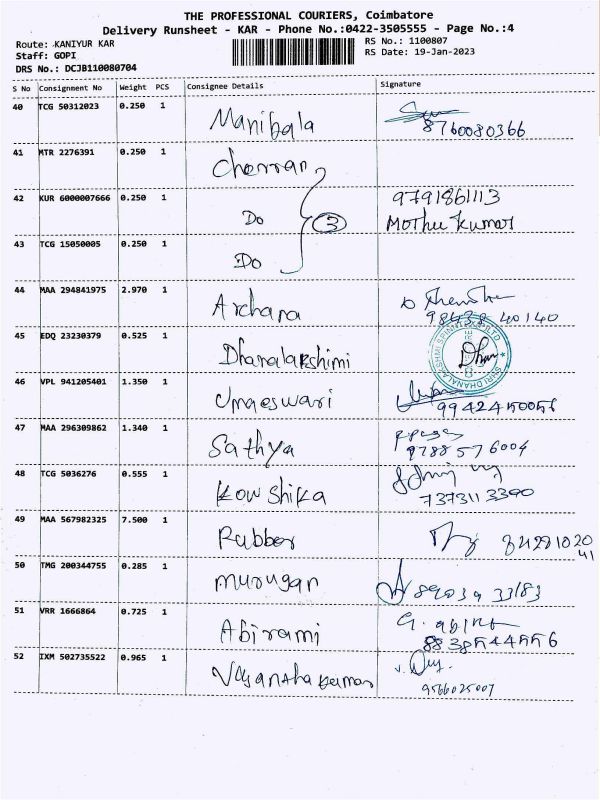 THE PROFESSIONAL COURIERS, Coimbatore
Delivery Runsheet - KAR - Phone No.:0422-3505555 - Page No.:4
Route: KANIYUR KAR
Staff: GOPI
DRS No.: DCJB110080704
RS No.: 1100807
RS Date: 19-Jan-2023
S No Consignment No Weight PCS Consignee Details Signature
40 TCG 50312023 0.250 1 Manibala 8760080366
41 MTR 2276391 0.250 1 Cherran
42 KUR 6000007666 0.250 1 Do 3 9791861113
Mothu Kumar
43 TCG 15050005 0.250 1 Do
44 MAA 294841975 2.970 1 Archana 98438 40140
45 EDQ 23230379 0.525 1 Dhanalakshimi
46 VPL 941205401 1.350 1 Umaeswari 9942450056
47 MAA 296309862 1.340 1 Sathya 9788576004
48 TCG 5036276 0.555 1 Kowshika 7373113390
49 MAA 567982325 7.500 1 Rubber
50 TMG 200344755 0.285 1 Murugan
51 VRR 1666864 0.725 1 Abirami 8838544556
52 IXM 502735522 0.965 1 Vasanthakumar 9566025007